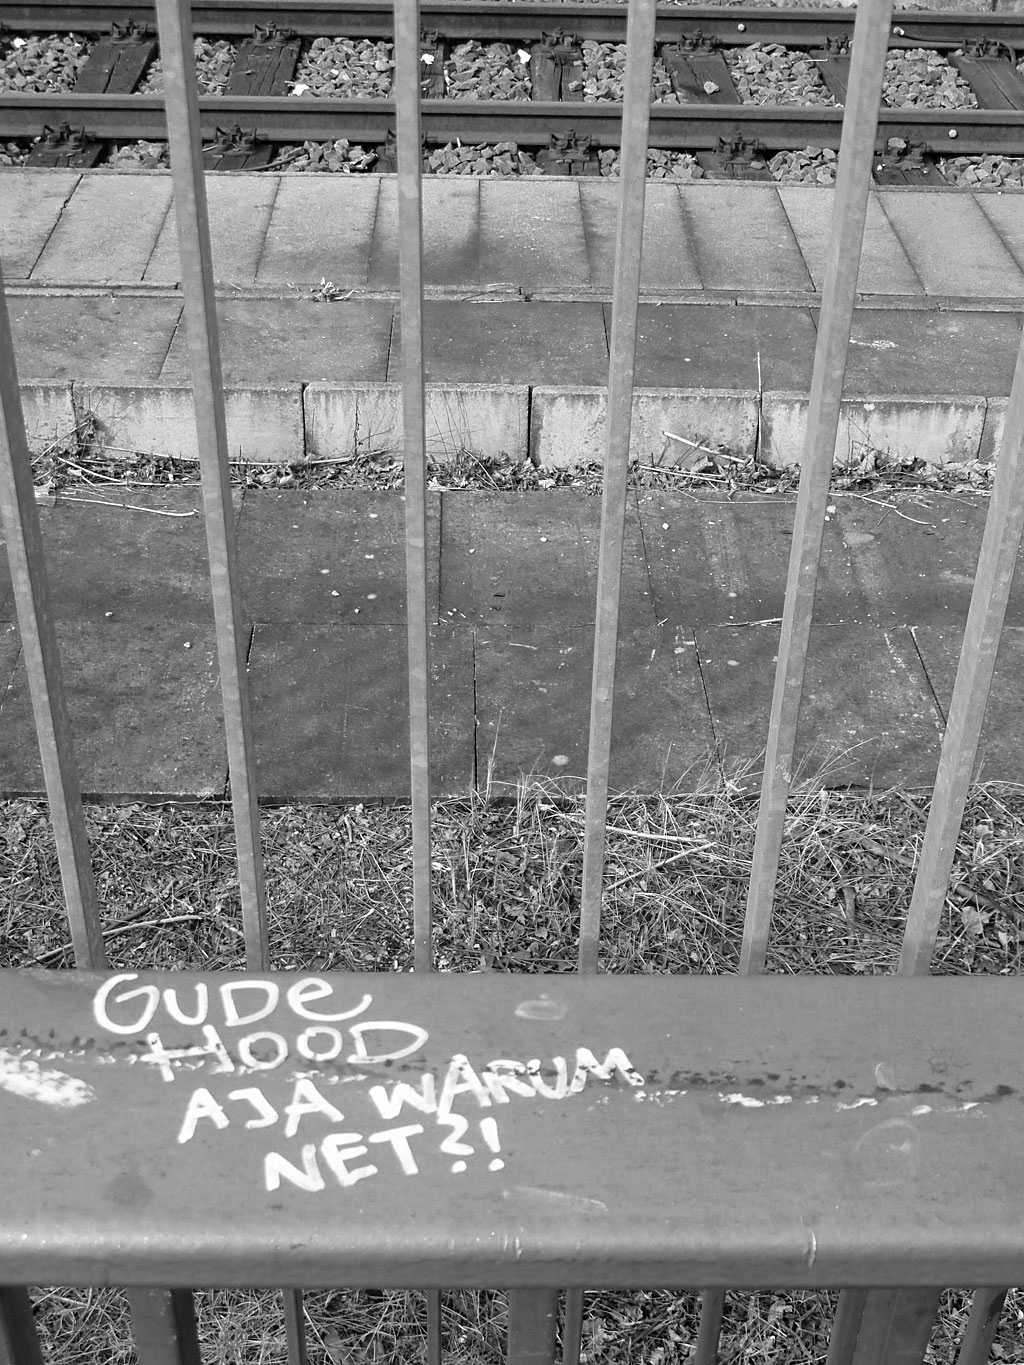 GUDE
HOOD
AJA WARUM
NET?!